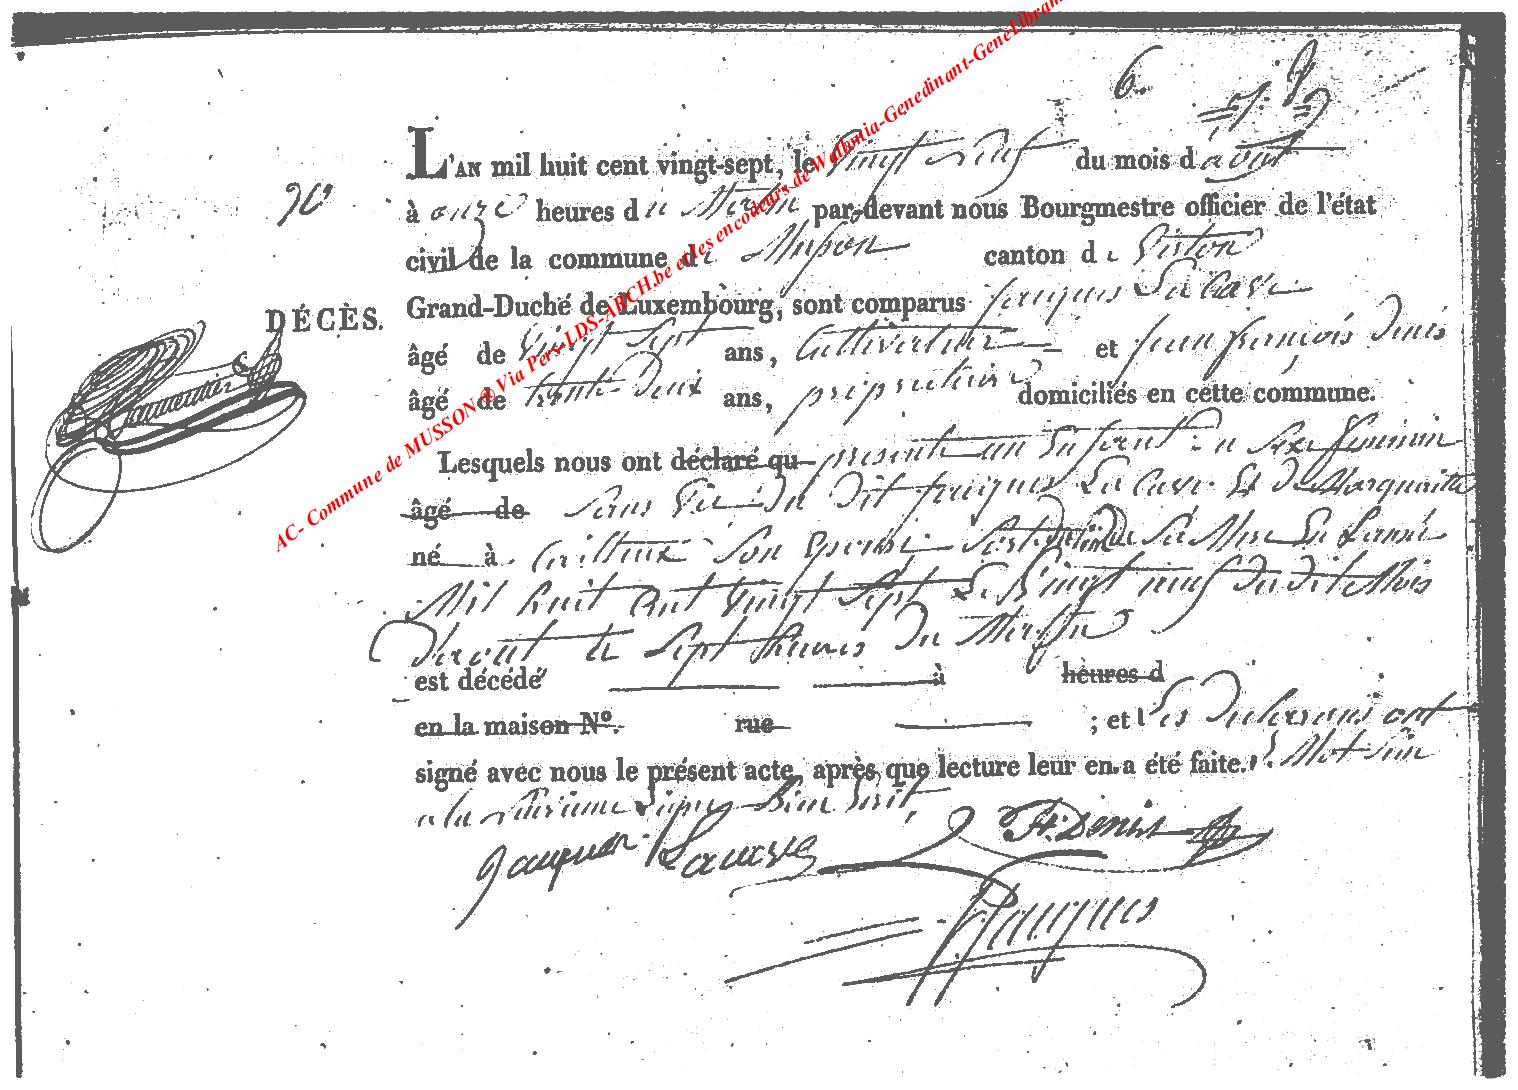 6
L'AN mil huit cent vingt-sept, le vingt neuf du mois d'août
à onze heures du Matin par-devant nous Bourgmestre officier de l'état
civil de la commune de Musson canton de Virton
Grand-Duché de Luxembourg, sont comparus Jacques LaCave
DÉCÈS.
âgé de Vingt Sept ans, Cultivateur et Jean françois Denis
âgé de trente Deux ans, propriétaire domiciliés en cette commune.
Lesquels nous ont déclaré qu présenté un Enfant du Sexe féminin
âgé de Sans Vie Du Dit Jacques LaCave Et De Marguerite
né à Son Epouse Sorti du de Sa Mere En Lanné
Mil huit Cent Vingt Sept Le Vingt neuf du dit Mois
daout a Sept heures Du Matin
est décédé à heures d
en la maison N°. rue ; et Les Declarans ont
signé avec nous le présent acte, après que lecture leur en a été faite. Le Mot Sein
a la Ligne Bien Ecrit,
Jacques Lacave
F. Denis
Jacques
AC- Commune de MUSSON @ Via Pers-LDS-ARCH.be et les encodeurs de Wallonia-Genedinant-GeneLibram